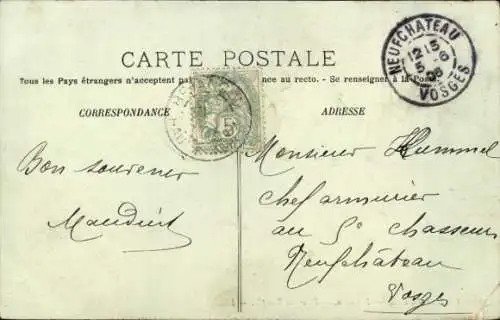 CARTE POSTALE
Tous les Pays étrangers n'acceptent pas ance au recto. - Se renseigner à la Poste.
CORRESPONDANCE
ADRESSE
NEUFCHATEAU
12 15
5 -6
08
VOSGES
5
Bon souvenir
Maudint
Monsieur Hummel
chef armurier
au 5e chasseurs
Neufchâteau
Vosges